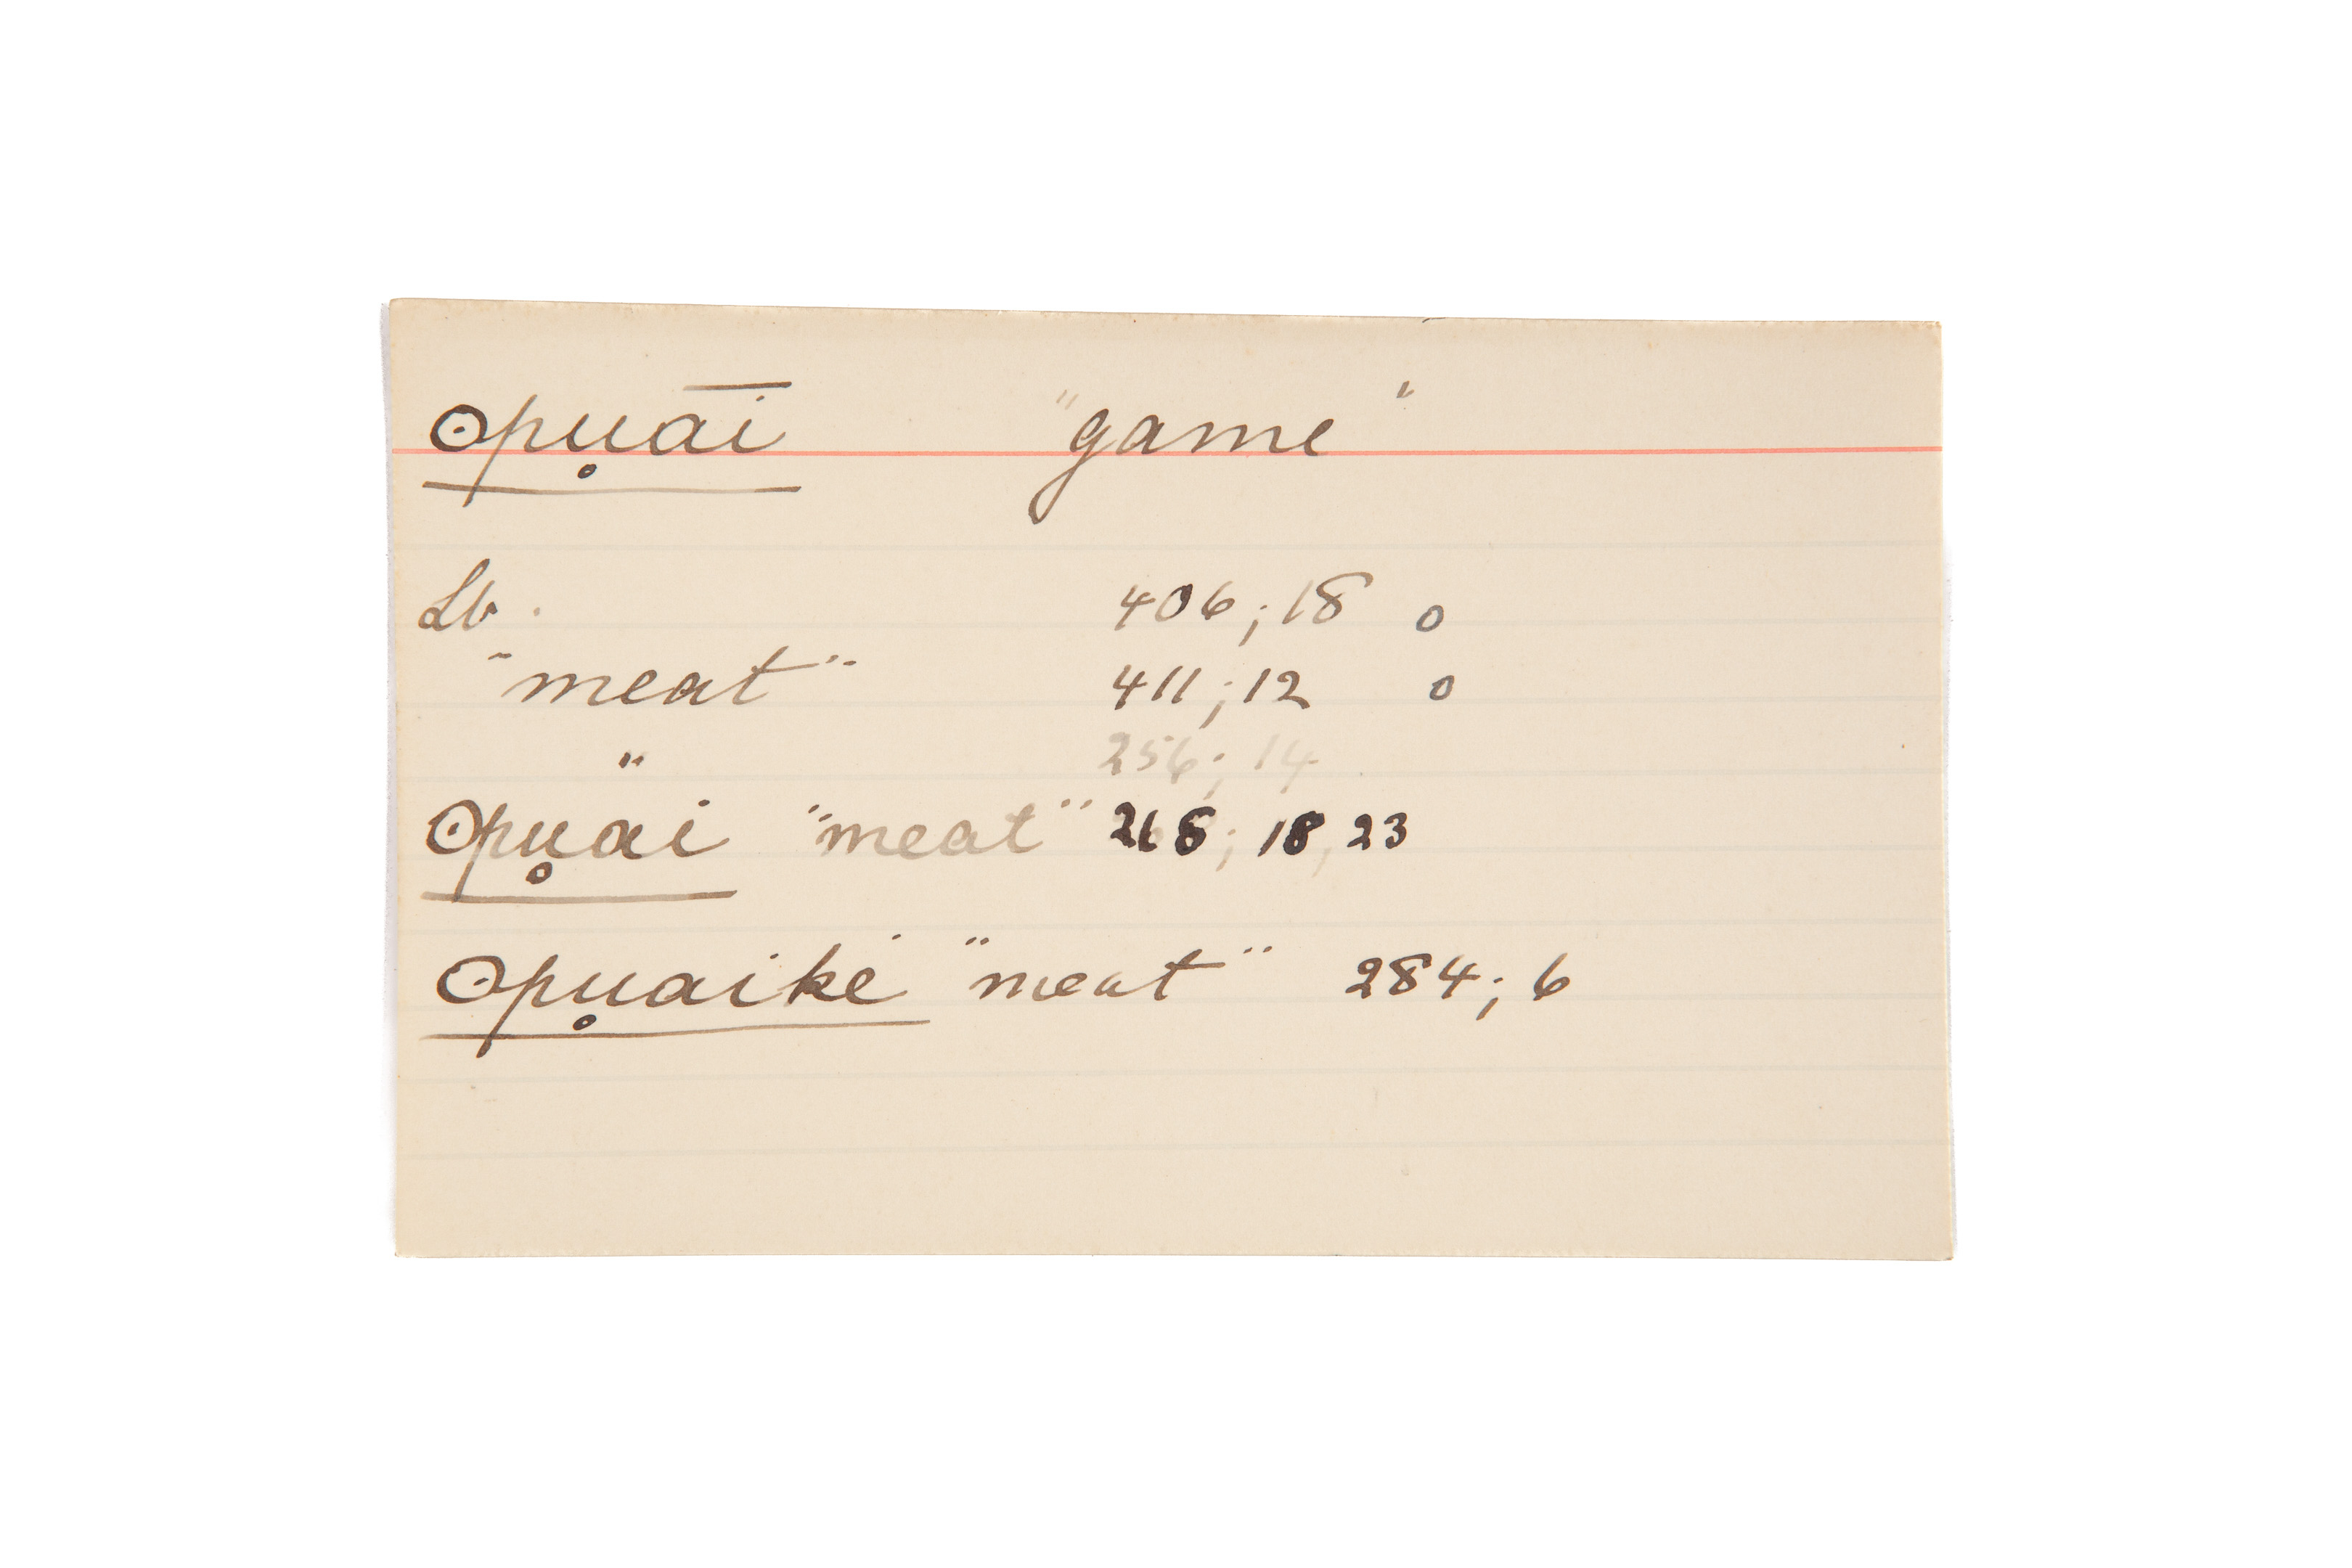 ʘpu̥a͞i "game"
Lb. 406; 18 o
"meat" 411; 12 o
" 256; 14
ʘpu̥ai "meat" 268; 18, 23
ʘpu̥aike "meat" 284; 6